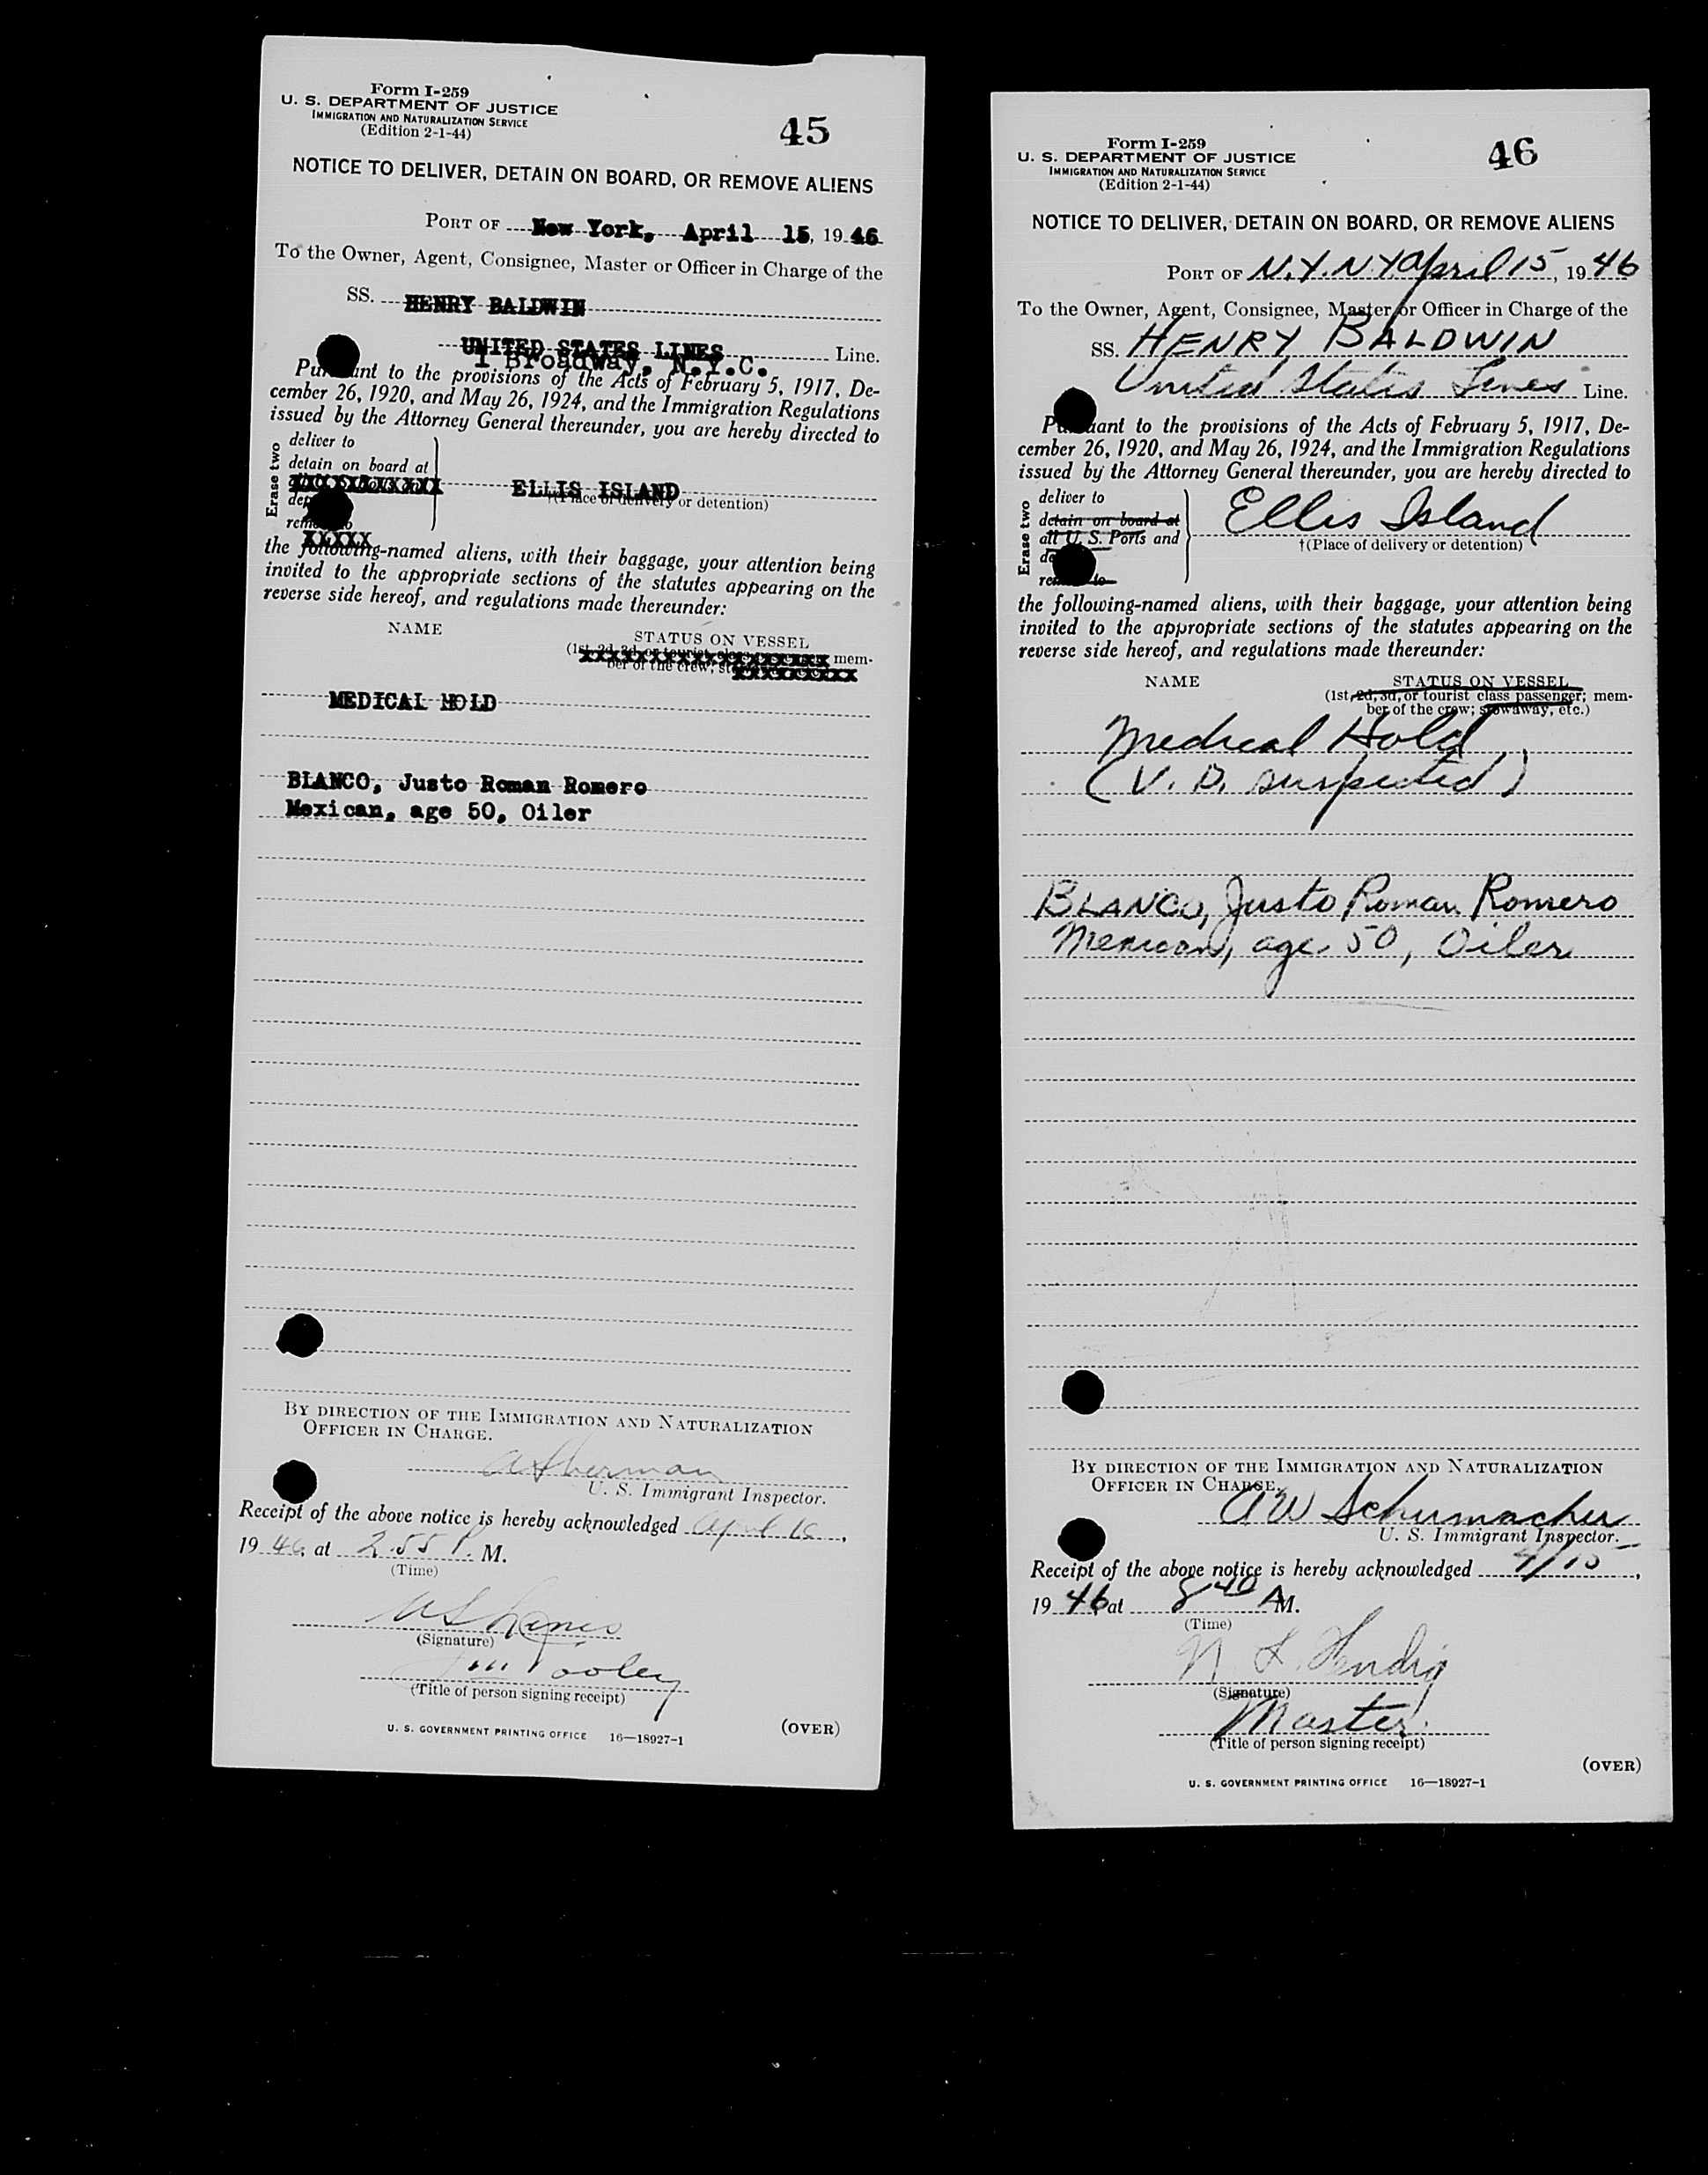 Form I-259
U. S. DEPARTMENT OF JUSTICE
IMMIGRATION AND NATURALIZATION SERVICE
(Edition 2-1-44)
45
NOTICE TO DELIVER, DETAIN ON BOARD, OR REMOVE ALIENS
PORT OF New York, April 15, 1946
To the Owner, Agent, Consignee, Master or Officer in Charge of the
SS. HENRY BALDWIN
UNITED STATES LINES Line.
1 Broadway, N.Y.C.
Pursuant to the provisions of the Acts of February 5, 1917, De-
cember 26, 1920, and May 26, 1924, and the Immigration Regulations
issued by the Attorney General thereunder, you are hereby directed to
Erase two
deliver to
detain on board at
XXXXXXXXXXX
ELLIS ISLAND
†(Place of delivery or detention)
XXXXX
the following-named aliens, with their baggage, your attention being
invited to the appropriate sections of the statutes appearing on the
reverse side hereof, and regulations made thereunder:
NAME STATUS ON VESSEL
(1st, 2d, 3d, or tourist class passenger; mem-
ber of the crew;
MEDICAL HOLD
BLANCO, Justo Roman Romero
Mexican, age 50, Oiler
BY DIRECTION OF THE IMMIGRATION AND NATURALIZATION
OFFICER IN CHARGE.
A Sherman
U. S. Immigrant Inspector.
Receipt of the above notice is hereby acknowledged April 16,
1946, at 2.55 P. M.
(Time)
(Signature)
(Title of person signing receipt)
U. S. GOVERNMENT PRINTING OFFICE 16—18927-1
(OVER)
Form I-259
U. S. DEPARTMENT OF JUSTICE
IMMIGRATION AND NATURALIZATION SERVICE
(Edition 2-1-44)
46
NOTICE TO DELIVER, DETAIN ON BOARD, OR REMOVE ALIENS
PORT OF N.Y. N.Y April 15, 1946
To the Owner, Agent, Consignee, Master or Officer in Charge of the
SS. HENRY BALDWIN
United States Lines Line.
Pursuant to the provisions of the Acts of February 5, 1917, De-
cember 26, 1920, and May 26, 1924, and the Immigration Regulations
issued by the Attorney General thereunder, you are hereby directed to
Erase two
deliver to
detain on board at
all U. S. Ports and
remove to
Ellis Island
†(Place of delivery or detention)
the following-named aliens, with their baggage, your attention being
invited to the appropriate sections of the statutes appearing on the
reverse side hereof, and regulations made thereunder:
NAME STATUS ON VESSEL
(1st, 2d, 3d, or tourist class passenger; mem-
ber of the crew; stowaway, etc.)
Medical Hold
(V. D. suspected)
BLANCO, Justo Roman Romero
Mexican, age 50, Oiler
BY DIRECTION OF THE IMMIGRATION AND NATURALIZATION
OFFICER IN CHARGE.
AW Schumacher
U. S. Immigrant Inspector.
Receipt of the above notice is hereby acknowledged 4/15,
1946 at 8 40 A M.
(Time)
(Signature)
Master
(Title of person signing receipt)
(OVER)
U. S. GOVERNMENT PRINTING OFFICE 16—18927-1